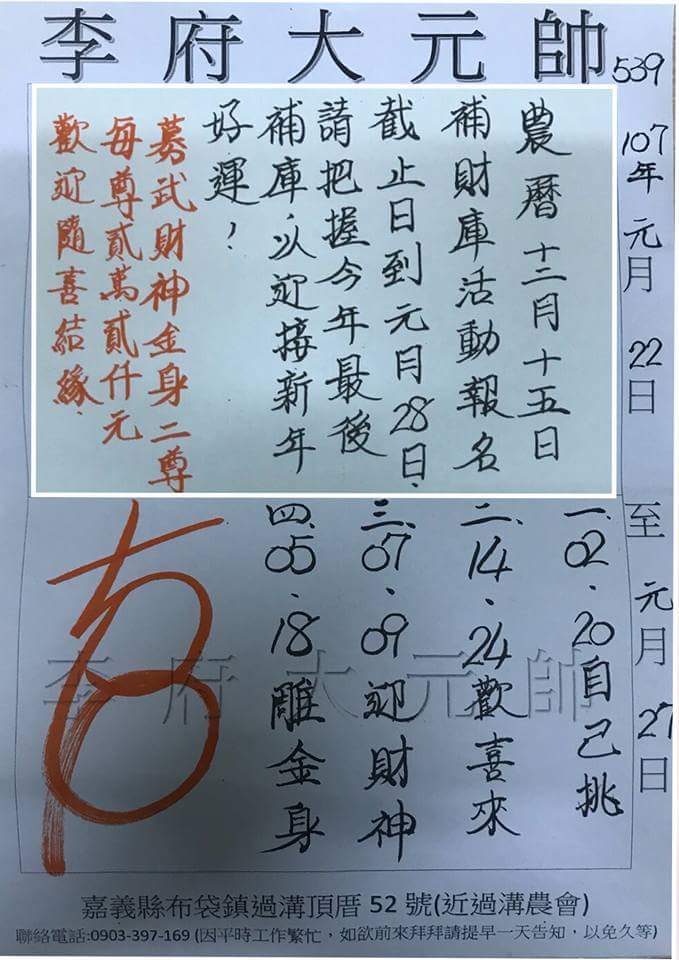 李府大元帥
539
107年元月22日至元月27日
農曆十二月十五日
補財庫活動報名
截止日到元月28日、
請把握今年最後
補庫、以迎接新年
好運！
募武財神金身二尊
每尊貳萬貳仟元
歡迎隨喜結緣、
一、02、20自己挑
二、14、24歡喜來
三、07、09迎財神
四、05、18雕金身
李府大元帥
嘉義縣布袋鎮過溝頂厝52號(近過溝農會)
聯絡電話:0903-397-169 (因平時工作繁忙，如欲前來拜拜請提早一天告知，以免久等)